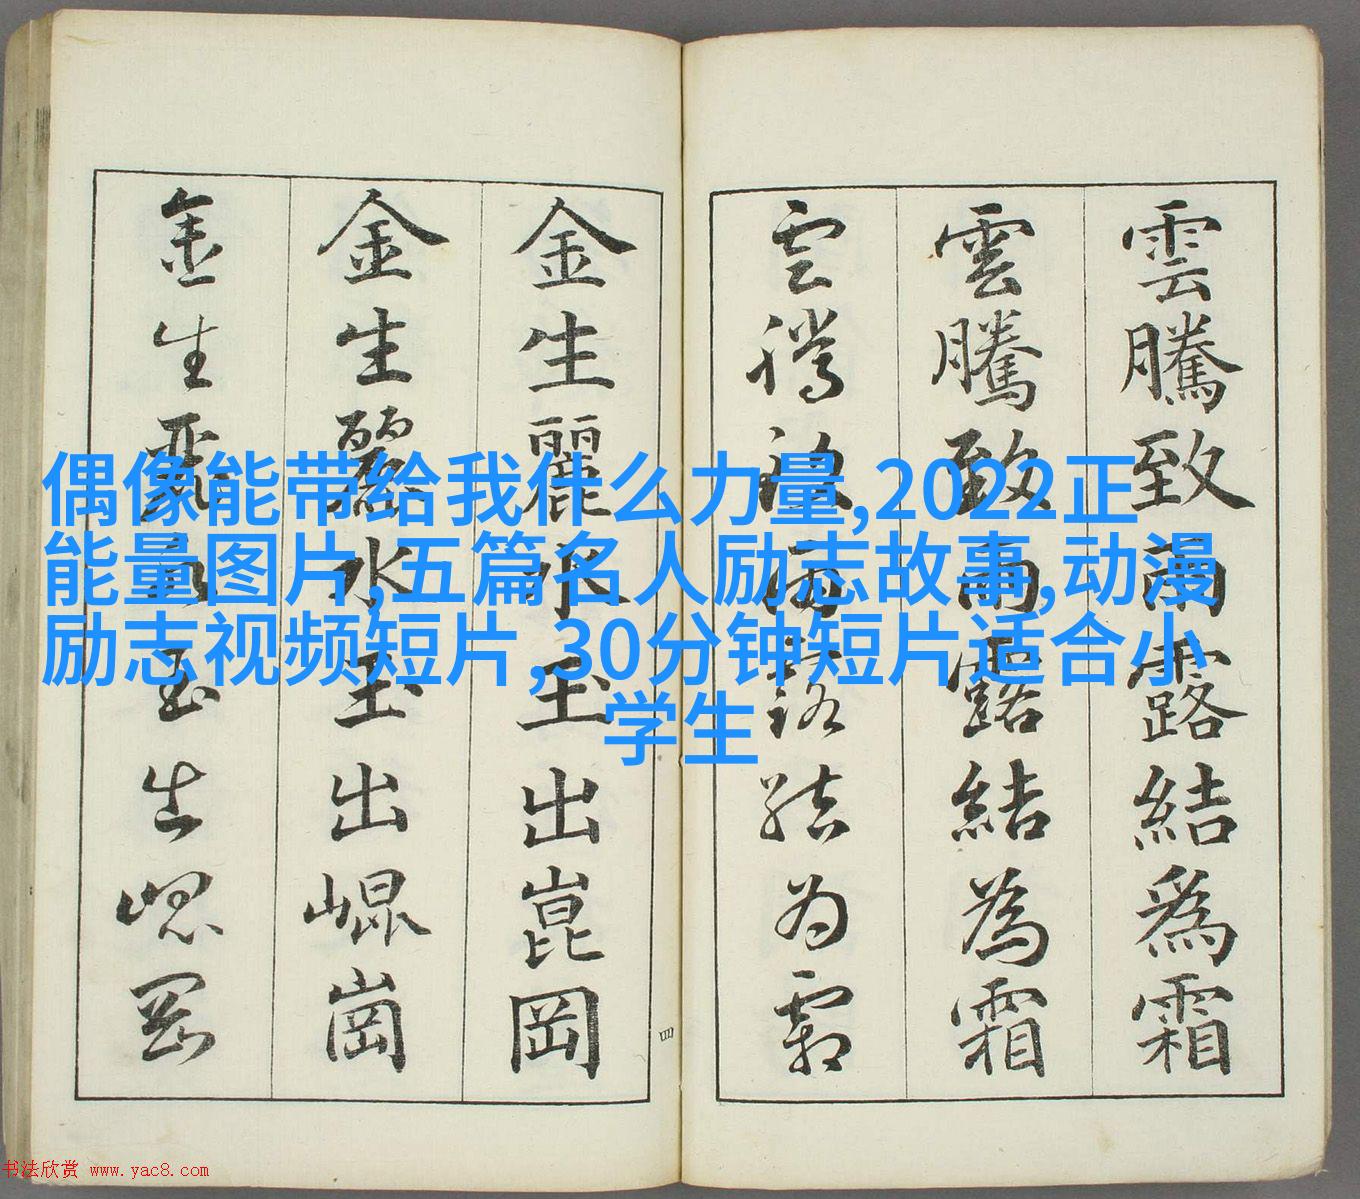 雲騰致雨露結爲霜
雲騰致雨露結為霜
雲騰致雨露結為霜
金生麗水玉出崑岡
金生麗水玉出崐崗
金生麗水玉出崐岡
四
偶像能带给我什么力量,2022正
能量图片,五篇名人励志故事,动漫
励志视频短片,30分钟短片适合小
学生
书法欣赏 www.yac8.com